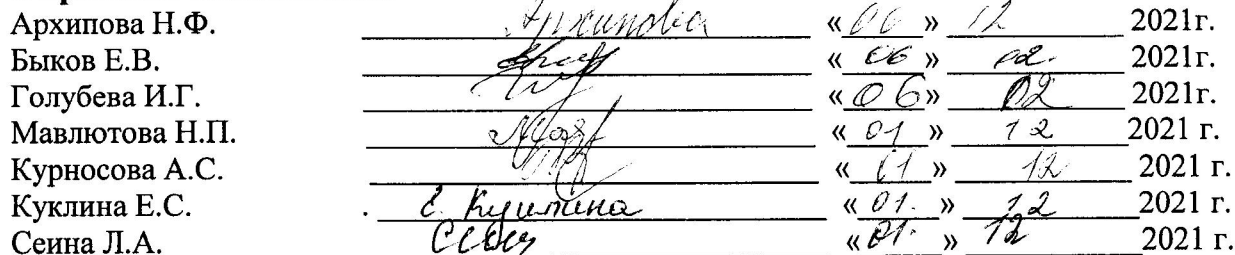 Архипова Н.Ф. Архипова «06» 12 2021г.
Быков Е.В. «06» 02. 2021г.
Голубева И.Г. «06» 02 2021г.
Мавлютова Н.П. «01» 12 2021 г.
Курносова А.С. «01» 12 2021 г.
Куклина Е.С. Е. Куклина «01.» 12 2021 г.
Сеина Л.А. «01.» 12 2021 г.